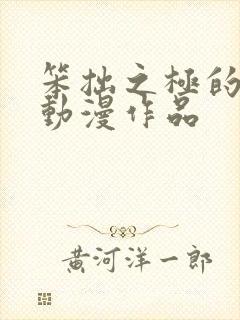 笨拙之極的
動漫作品
黃河洋一郎